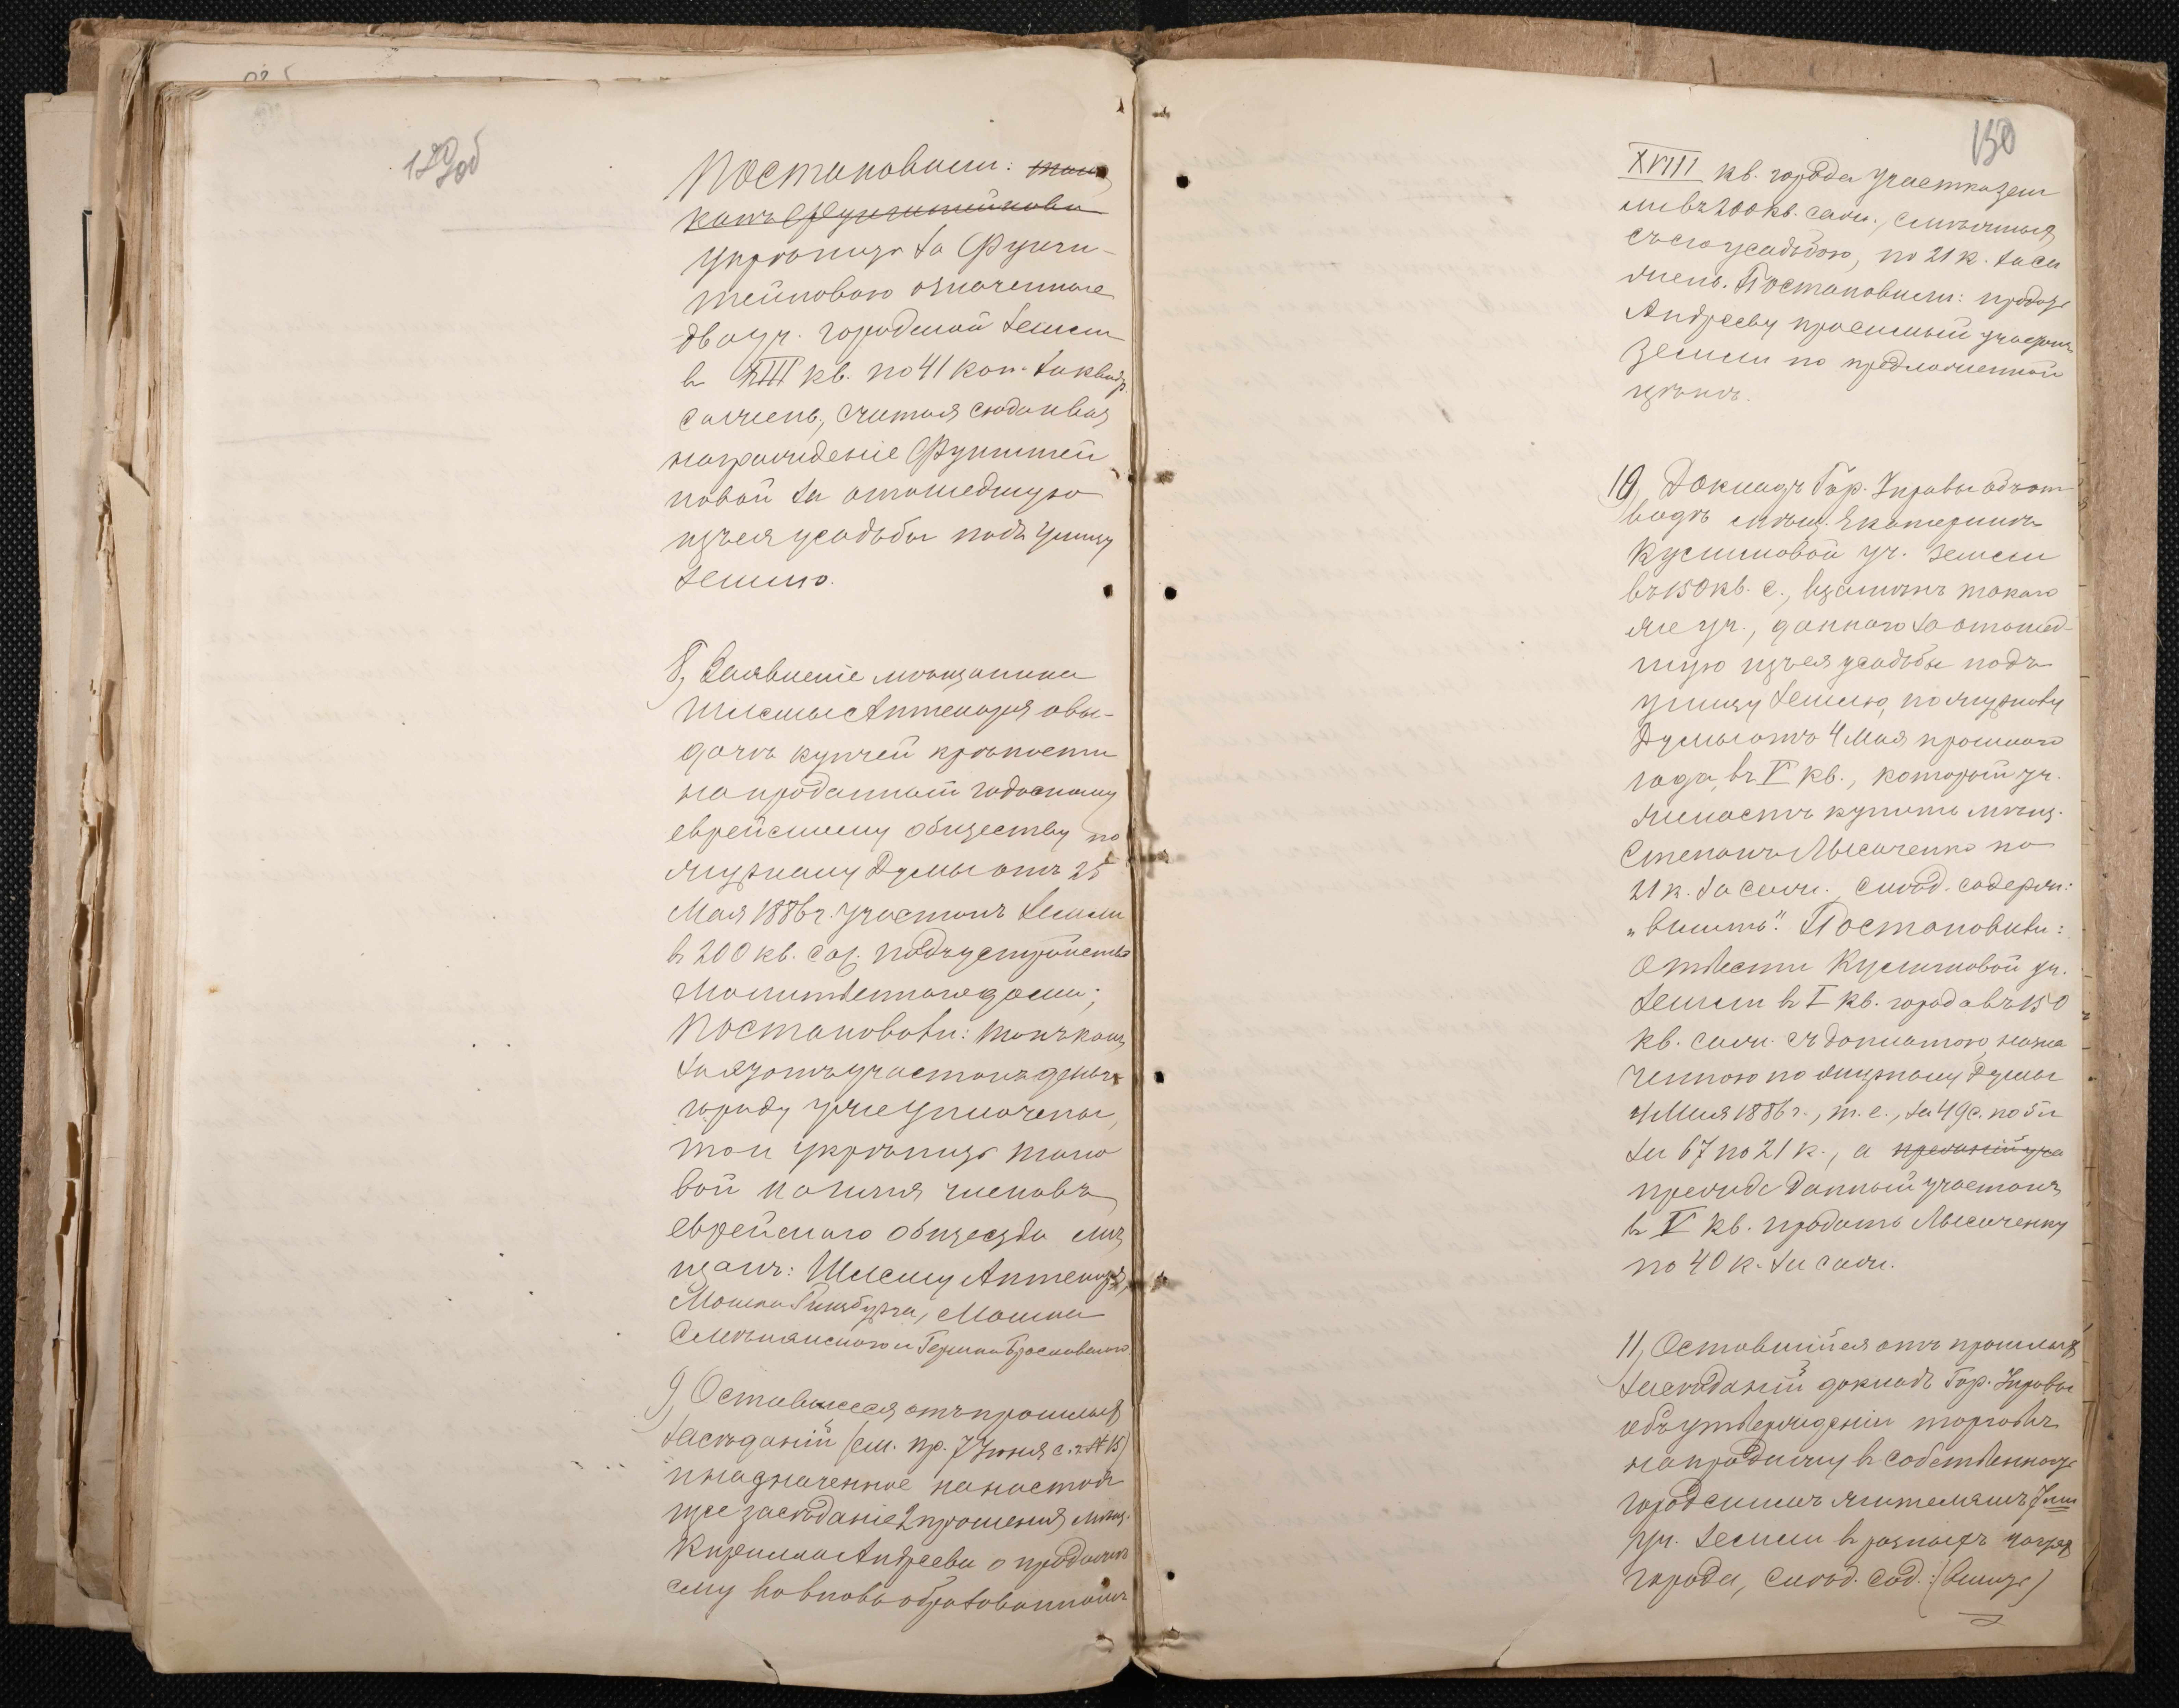 129об
Постановили: такъ
какъ Функитейнова
укрѣпить за Функи-
тейновою означенные
два уч. городской земли
въ XIII кв. по 41 коп. за квадр.
сажень, считая сюда и воз
награжденіе Функитей
новой за отошедшую
изъ ея усадьбы подъ улицу
землю.
8, Заявленіе мѣщанина
Шлемы Аптекаря о вы-
дачѣ купчей крѣпости
на проданный здѣшнему
еврейскому обществу по
журналу Думы отъ 25
Мая 1886 г. участокъ земли
въ 200 кв. саж. подъ устройство
молитвеннаго дома;
Постановили: такъ какъ
за этотъ участокъ деньги
городу уже уплочены,
то и укрѣпить тако
вой на имя членовъ
еврейскаго общества мѣ
щанъ: Шлему Аптекаря,
Мошки Гинзбурга, Мошки
Смелянскаго и Герша Браславскаго
9, Оставшееся отъ прошлыхъ
засѣданій (см. пр. 7 Іюня с. г. № 15)
и назначенное на настоя
щее засѣданіе 2 прошенія мѣщ.
Кирилла Андреева о продажѣ
ему во вновь образованномъ
150
XVIII кв. города участка зем
ли въ 200 кв. саж., смежный
съ его усадьбою, по 21 к. за са
жень. Постановили: продать
Андрееву просимый участокъ
земли по предложенной
цѣнѣ.
10, Докладъ Гор. Управы объ от
водѣ мѣщ. Екатеринѣ
Куслиловой уч. земли
въ 150 кв. с., взамѣнъ такого
же уч., даннаго за отошед-
шую изъ ея усадьбы подъ
улицу землю, по журналу
Думы отъ 4 Мая прошлаго
года, въ V кв., который уч.
желаетъ купить мѣщ.
Степанъ Лысаченко по
21 к. за саж. слѣд. содерж:
„влить". Постановили:
отвести Куслиловой уч.
земли въ I кв. города въ 150
кв. саж. съ доплатою, назна
ченною по журналу Думы
4 Мая 1886 г., т. е., за 49 с. по 5 к
за 67 по 21 к., а прежній уча
прежде данный участокъ
въ V кв. продать Лысаченку
по 40 к. за саж.
11, Оставшійся отъ прошлыхъ
засѣданій докладъ Гор. Управы
объ утвержденіи торговъ
на продажу въ собственность
городскимъ жителямъ 7ми
уч. земли въ разныхъ частях
города, слѣд. сод.: (влить)